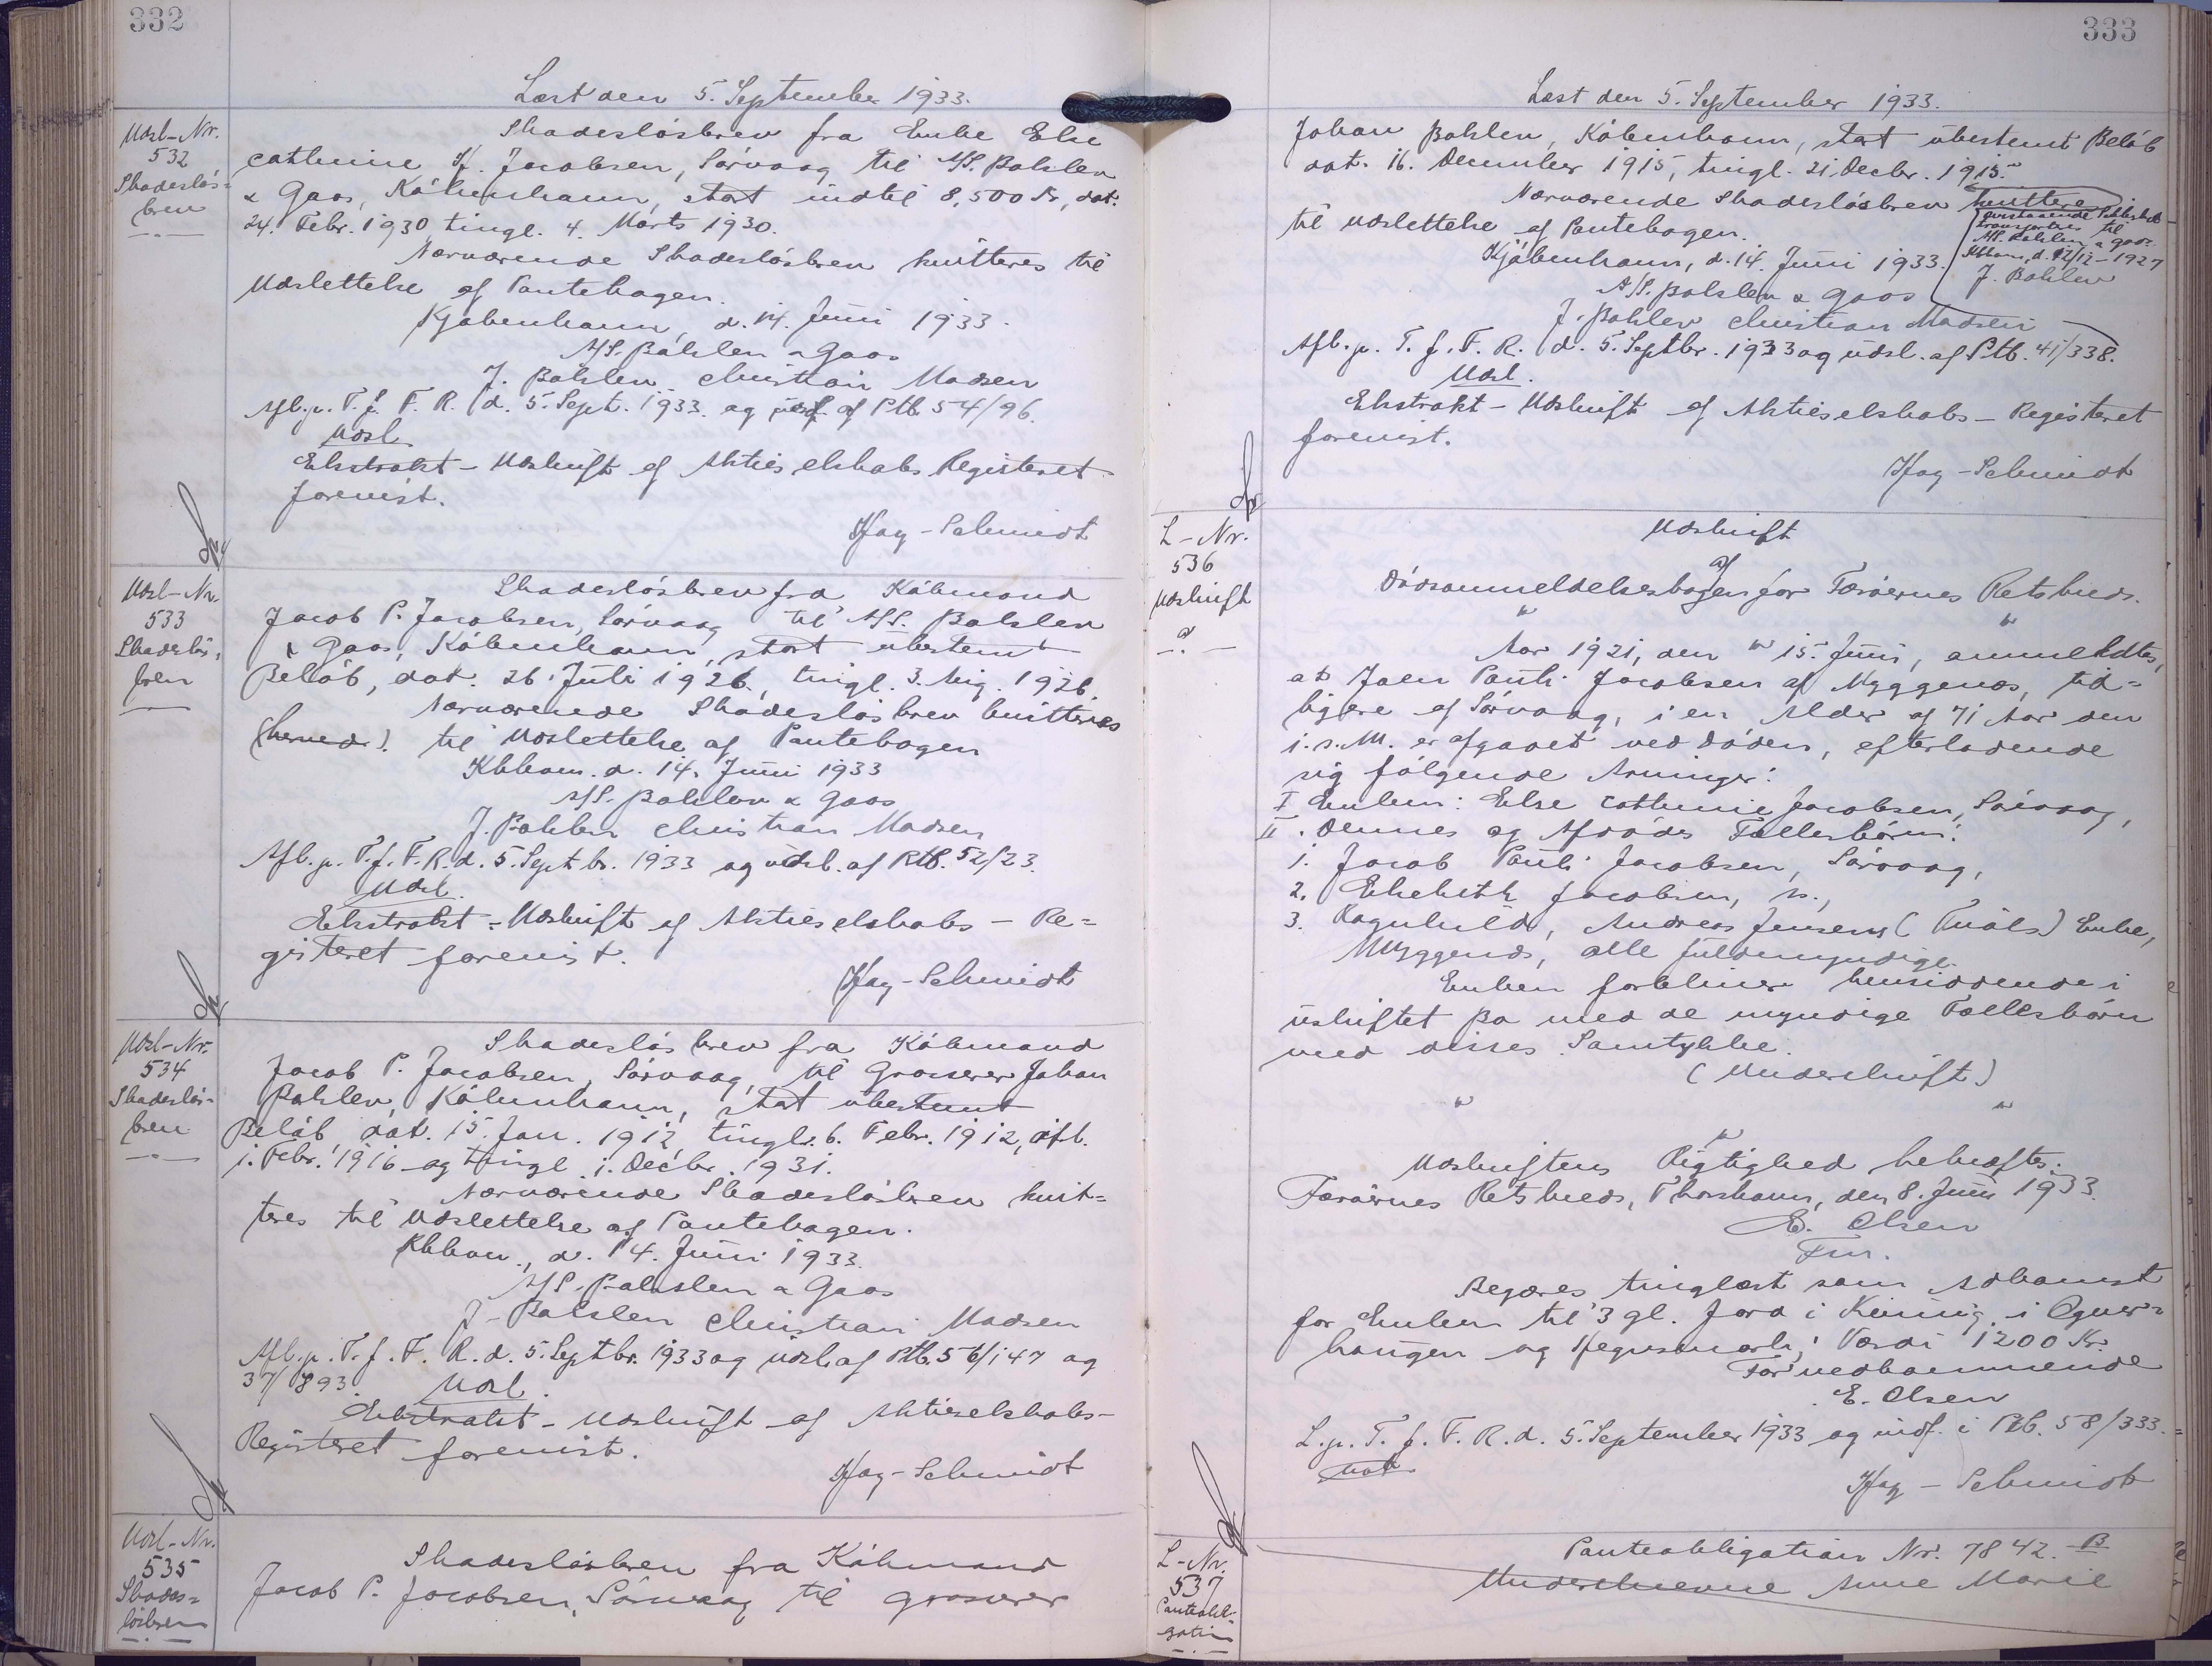 332
Læst den 5. September 1933.
Udsl-Nr.
532
Skadeslös=
brev
Skadeslösbrev fra Enke Else
Cathrine H. Jacobsen, Sörvaag til A/S. Balslev
& Gaos, Köbenhavn, stort indtil 8,500 Kr, dat.
24. Febr. 1930, tingl. 4. Marts 1930.
Nærværende Skadeslösbrev kvitteres til
Udslettelse af Pantebogen.
Kjöbenhavn, d. 14. Juni 1933.
A/S. Balslev & Gaos
J. Balslev Christian Madsen
Afl. p. T. f. F. R. d. 5. Sept. 1933. og udsl. af Ptb. 54/96.
Udsl.
Ekstrakt-Udskrift af Aktieselskabs Registeret
forevist.
Hay-Schmidt
Udsl-Nr.
533
Skadeslös=
brev
Skadeslösbrev fra Köbmand
Jacob P. Jacobsen, Sörvaag til A/S. Balslev
& Gaos, Köbenhavn, stort ubestemt
Belöb, dat. 26. Juli 1926., tingl. 3. Aug. 1926.
Nærværende Skadeslösbrev kvitteres
(herved). til Udslettelse af Pantebogen
Kbhavn. d. 14. Juni 1933
A/S. Balslev & Gaos
J. Balslev Christian Madsen
Afl. p. T. f. F. R. d. 5. Septbr. 1933 og udsl. af Ptb. 52/23.
Udsl.
Ekstrakt-Udskrift af Aktieselskabs-Re=
gisteret forevist.
Hay-Schmidt
Udsl-Nr.
534
Skadeslös=
brev
Skadeslösbrev fra Köbmand
Jacob P. Jacobsen, Sörvaag, til Grosserer Johan
Balslev, Köbenhavn, stort ubestemt
Belöb, dat. 15. Jan. 1912, tingl. 6. Febr. 1912, afl.
1. Febr. 1916 og tingl. 1. Decbr. 1931.
Nærværende Skadeslösbrev kvit=
teres til Udslettelse af Pantebogen.
Kbhavn., d. 14. Juni 1933.
A/S. Balslev & Gaos
J. Balslev Christian Madsen
Afl. p. T. f. F. R. d. 5. Septbr. 1933 og udsl. af Ptb. 56/147 og
37/893.
Udsl.
Ekstrakt-Udskrift af Aktieselskabs-
Registeret forevist.
Hay-Schmidt
Udsl-Nr.
535
Skades=
lösbrev
Skadeslösbrev fra Köbmand
Jacob P. Jacobsen, Sörvaag til Grosserer
333
Læst den 5. September 1933.
Johan Balslev, Köbenhavn, stort ubestemt Belöb
dat. 16. December 1915, tingl. 21. Decbr. 1915.
Nærværende Skadeslösbrev kvitteres
til Udslettelse af Pantebogen.
ovenstaaende Skadeslösb.
transporteres til
A/S. Balslev & Gaos.
Kbhavn, d. 12/12-1927
J. Balslev
Kjöbenhavn, d. 14. Juni 1933.
A/S. Balslev & Gaos
J. Balslev Christian Madsen
Afl. p. T. f. F. R. d. 5. Septbr. 1933 og udsl. af Ptb. 41/338.
Udsl.
Ekstrakt-Udskrift af Aktieselskabs-Registeret
forevist.
Hay-Schmidt
L-Nr.
536
Udskrift
a
Udskrift
af
Dödsanmeldelsesbogen for Færöernes Retskreds.
Aar 1921, den 15. Juni, anmeldtes,
at Joen Pauli Jacobsen af Myggenæs, tid=
ligere af Sörvaag, i en Alder af 71 Aar den
1. s. M. er afgaaet ved Döden, efterladende
sig fölgende Arvinger:
I Enken: Else Cathrine Jacobsen, Sörvaag,
II. Dennes og Afdödes Fællesbörn:
1. Jacob Pauli Jacobsen, Sörvaag,
2. Elsebeth Jacobsen, s.,
3. Ragnhild, Andreas Jensens (Tuals) Enke,
Myggenæs, alle fuldmyndige.
Enken forbliver hensiddende i
uskiftet Bo med de myndige Fællesbörn
med disses Samtykke.
(Underskrift)
Udskriftens Rigtighed bekræftes.
Færöernes Retskreds, Thorshavn, den 8. Juni 1933.
E. Olsen
Fm.
Begæres tinglæst som Adkomst
for Enken til 3 gl. Jord i Heimig. i Ogner=
haugen og Hegnsmark; Værdi 1200 Kr.
For vedkommende
E. Olsen
L. p. T. f. F. R. d. 5. September 1933 og indf. i Ptb. 58/333.
Not.
Hay-Schmidt
L-Nr.
537
Panteobli=
gation
Panteobligation Nr. 7842. B
Underskrevne Anne Marie